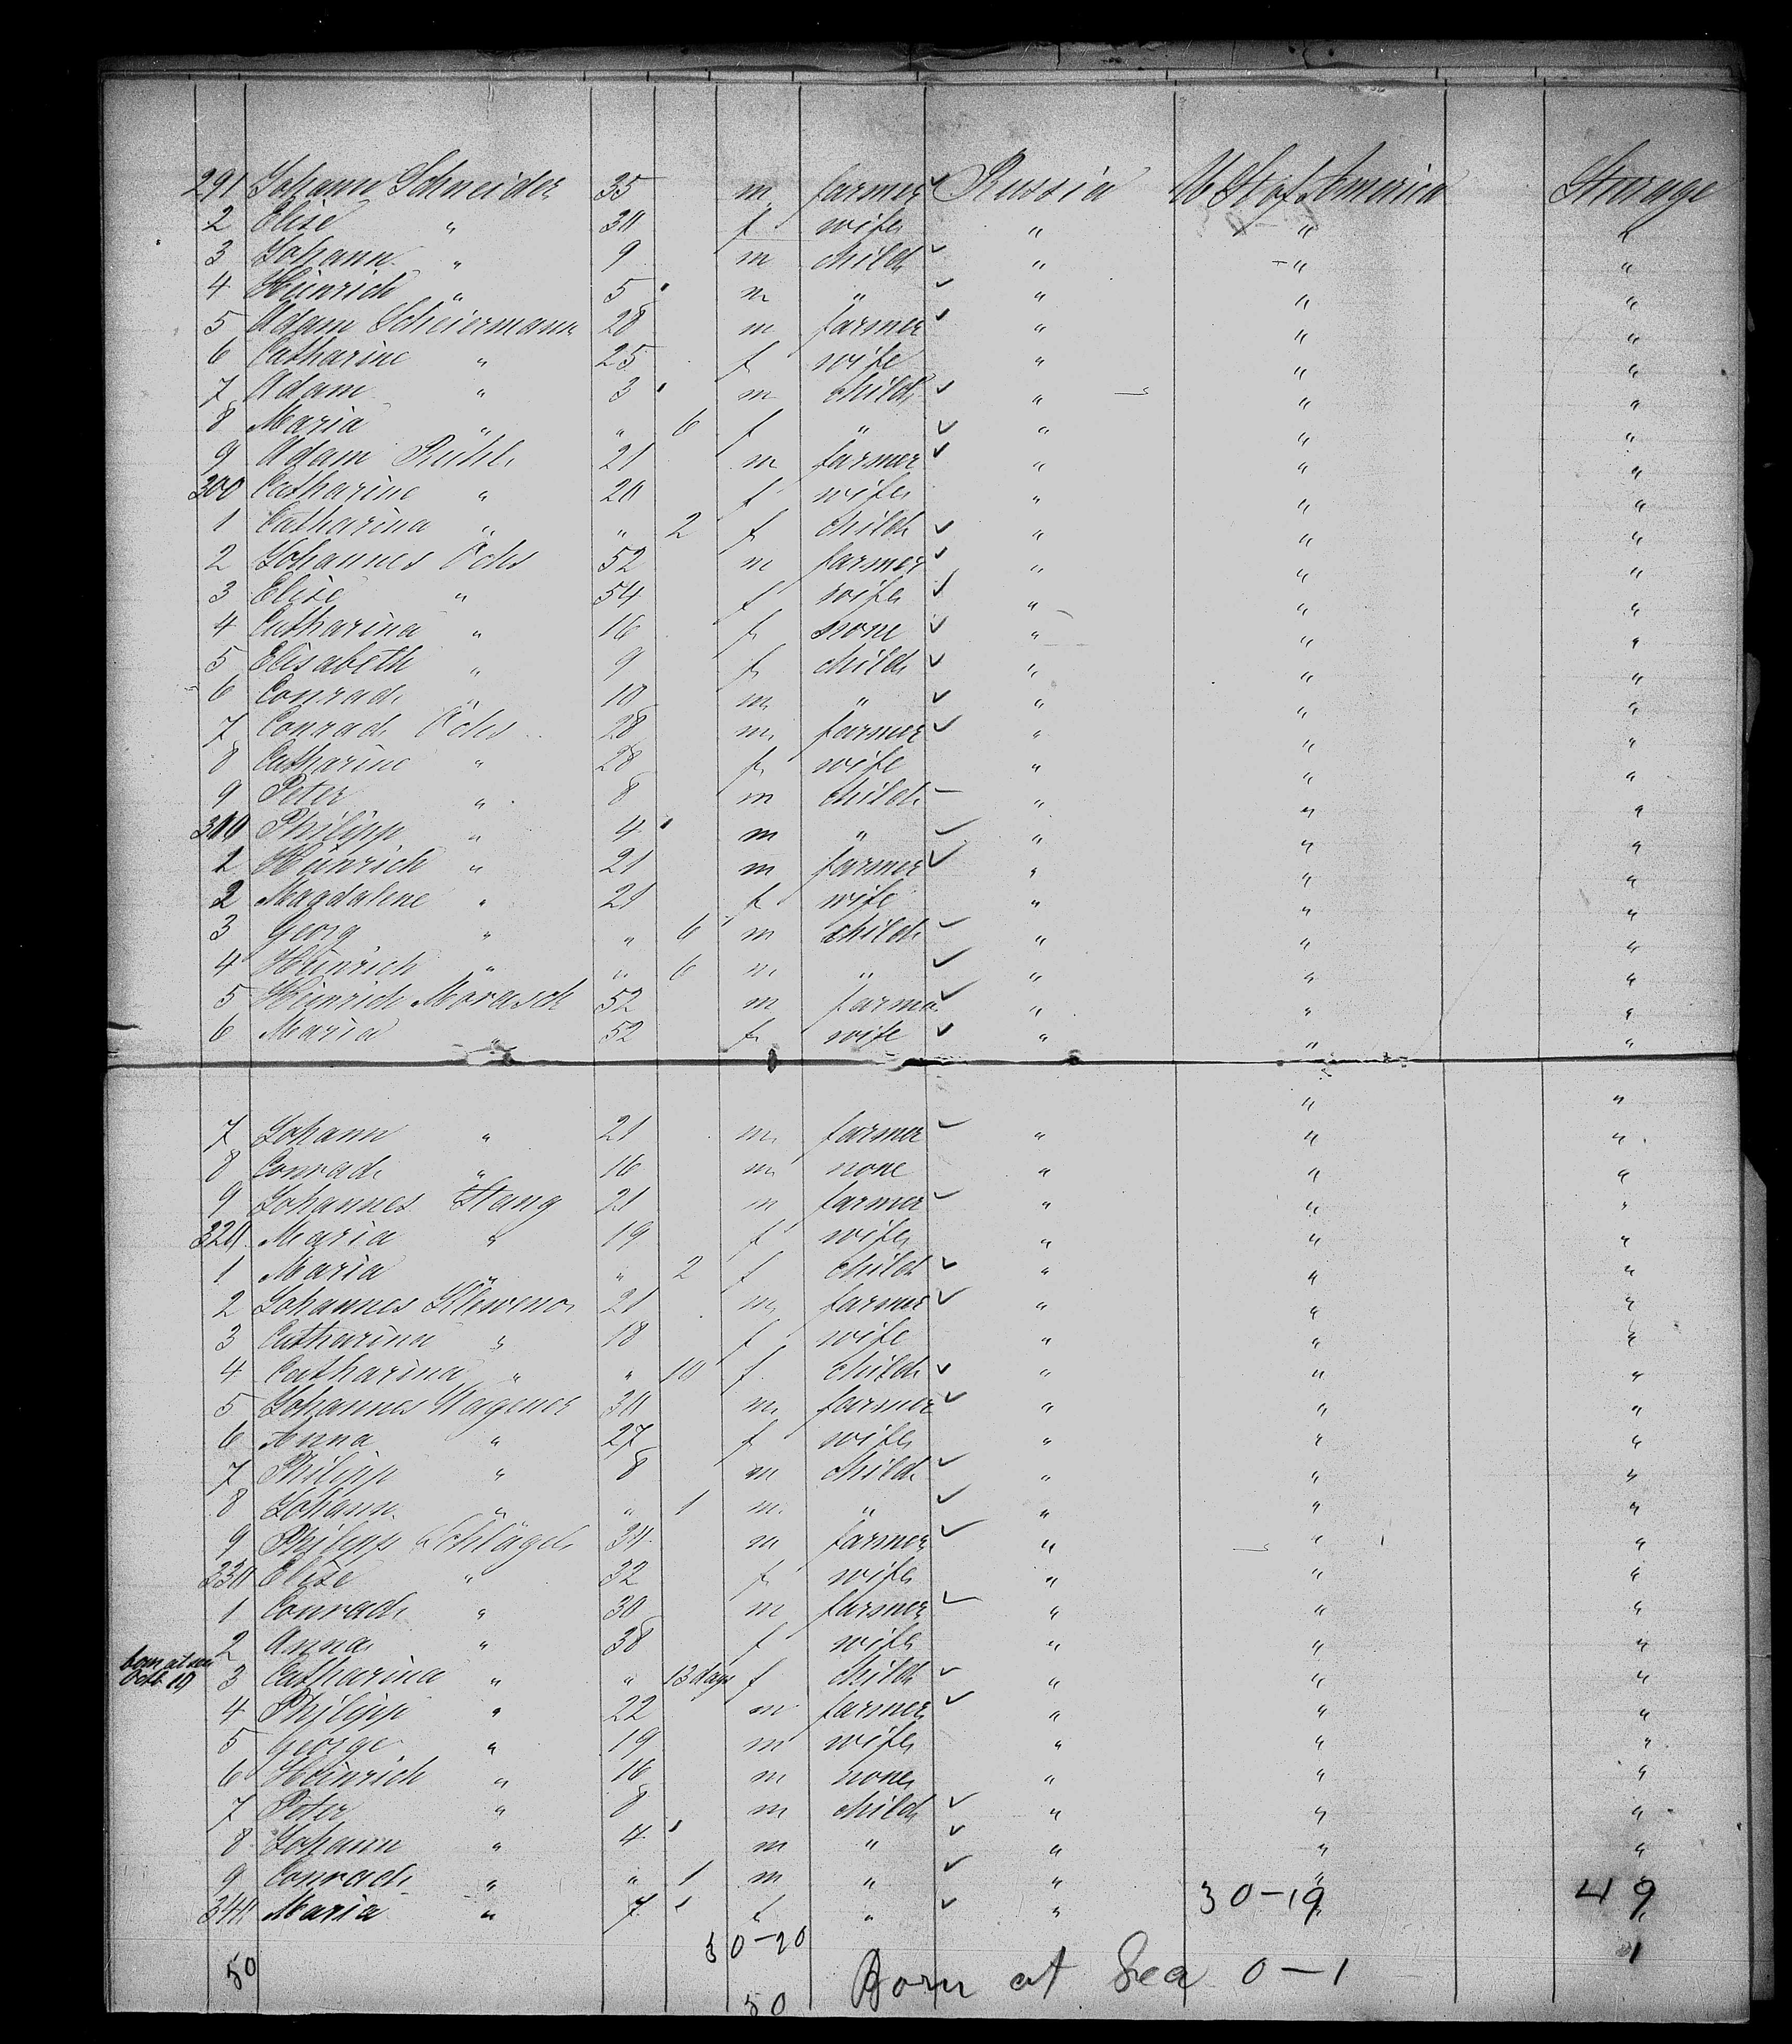 291 Johann Schneider 35 m farmer Russia U St of America Steerage
2 Elise " 30 f wife " " "
3 Johann " 9 m child " " "
4 Heinrich " 5 m " " " "
5 Adam Scheiermann 28 m farmer " " "
6 Catharine " 25 f wife " " "
7 Adam " 3 m child " " "
8 Maria " " 6 f " " " "
9 Adam Ruhl 21 m farmer " " "
300 Catharine " 20 f wife " " "
1 Catharina " " 2 f child " " "
2 Johannes Ochs 52 m farmer " " "
3 Elise " 54 f wife " " "
4 Catharina " 16 f none " " "
5 Elisabeth " 9 f child " " "
6 Conrad " 10 m " " " "
7 Conrad Ochs 28 m farmer " " "
8 Catharine " 28 f wife " " "
9 Peter " 8 m child " " "
310 Philipp " 4 m " " " "
1 Heinrich " 21 m farmer " " "
2 Magdalene " 21 f wife " " "
3 Georg " " 6 m child " " "
4 Heinrich " " 6 m " " " "
5 Heinrich Morasch 52 m farmer " " "
6 Maria " 52 f wife " " "
7 Johann " 21 m farmer " " "
8 Conrad " 16 m none " " "
9 Johannes Stang 21 m farmer " " "
320 Maria " 19 f wife " " "
1 Maria " " 2 f child " " "
2 Johannes 21 m farmer " " "
3 Catharina " 18 f wife " " "
4 Catharina " " 10 f child " " "
5 Johannes Wagener 30 m farmer " " "
6 Anna " 27 f wife " " "
7 Philipp " 8 m child " " "
8 Johann " " 1 m " " " "
9 Philipp Schlägel 34 m farmer " " "
330 Elise " 32 f wife " " "
1 Conrad " 30 m farmer " " "
2 Anna " 38 f wife " " "
born at sea Octb 10 3 Catharina " " 13 days f child " " "
4 Philipp " 22 m farmer " " "
5 George " 19 m wife " " "
6 Heinrich " 16 m none " " "
7 Peter " 8 m child " " "
8 Johann " 4 m " " " "
9 Conrad " " 1 m " " " "
340 Maria " 7 f " " 30-19 " 49 "
30-20
50 Born at Sea 0-1 1
50